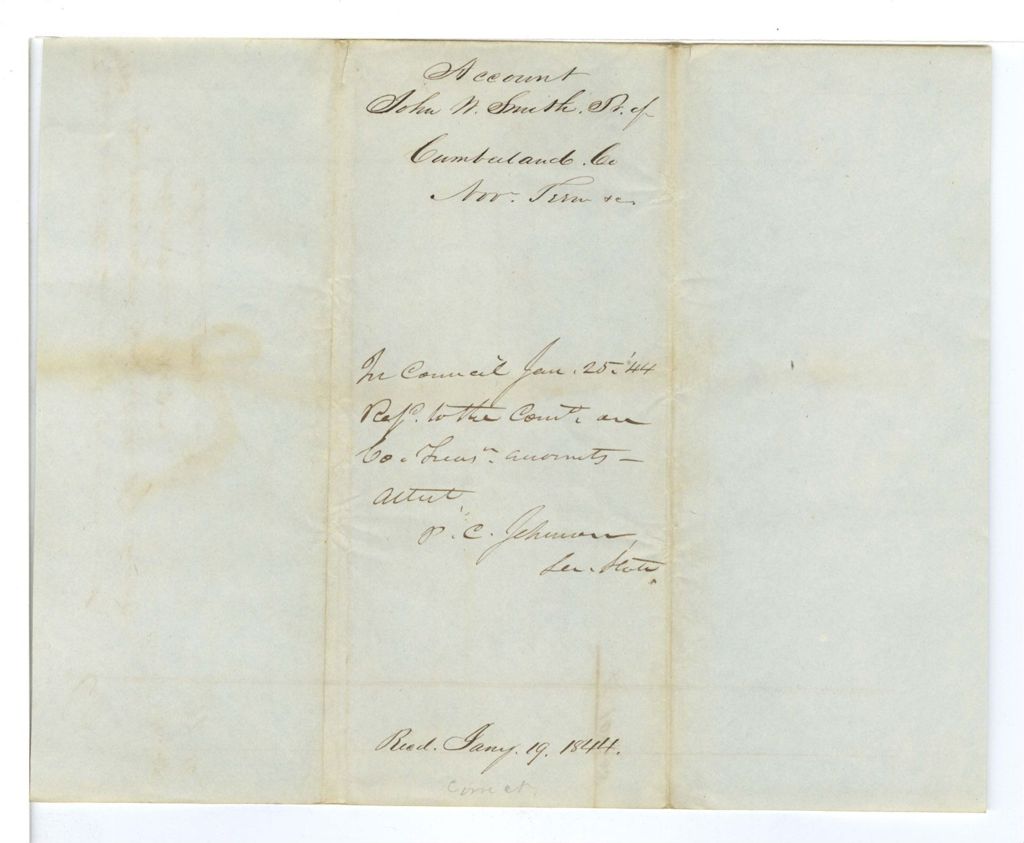 Account
John W. Smith. Tr. of
Cumberland. Co
Nov. Term &c.
In Council Jan. 25. '44
Refd. to the Comte. on
Co. Treasrs. accounts –
Attest,
P. C. Johnson,
Sec. State.
Recd. Jany. 19. 1844.
Correct